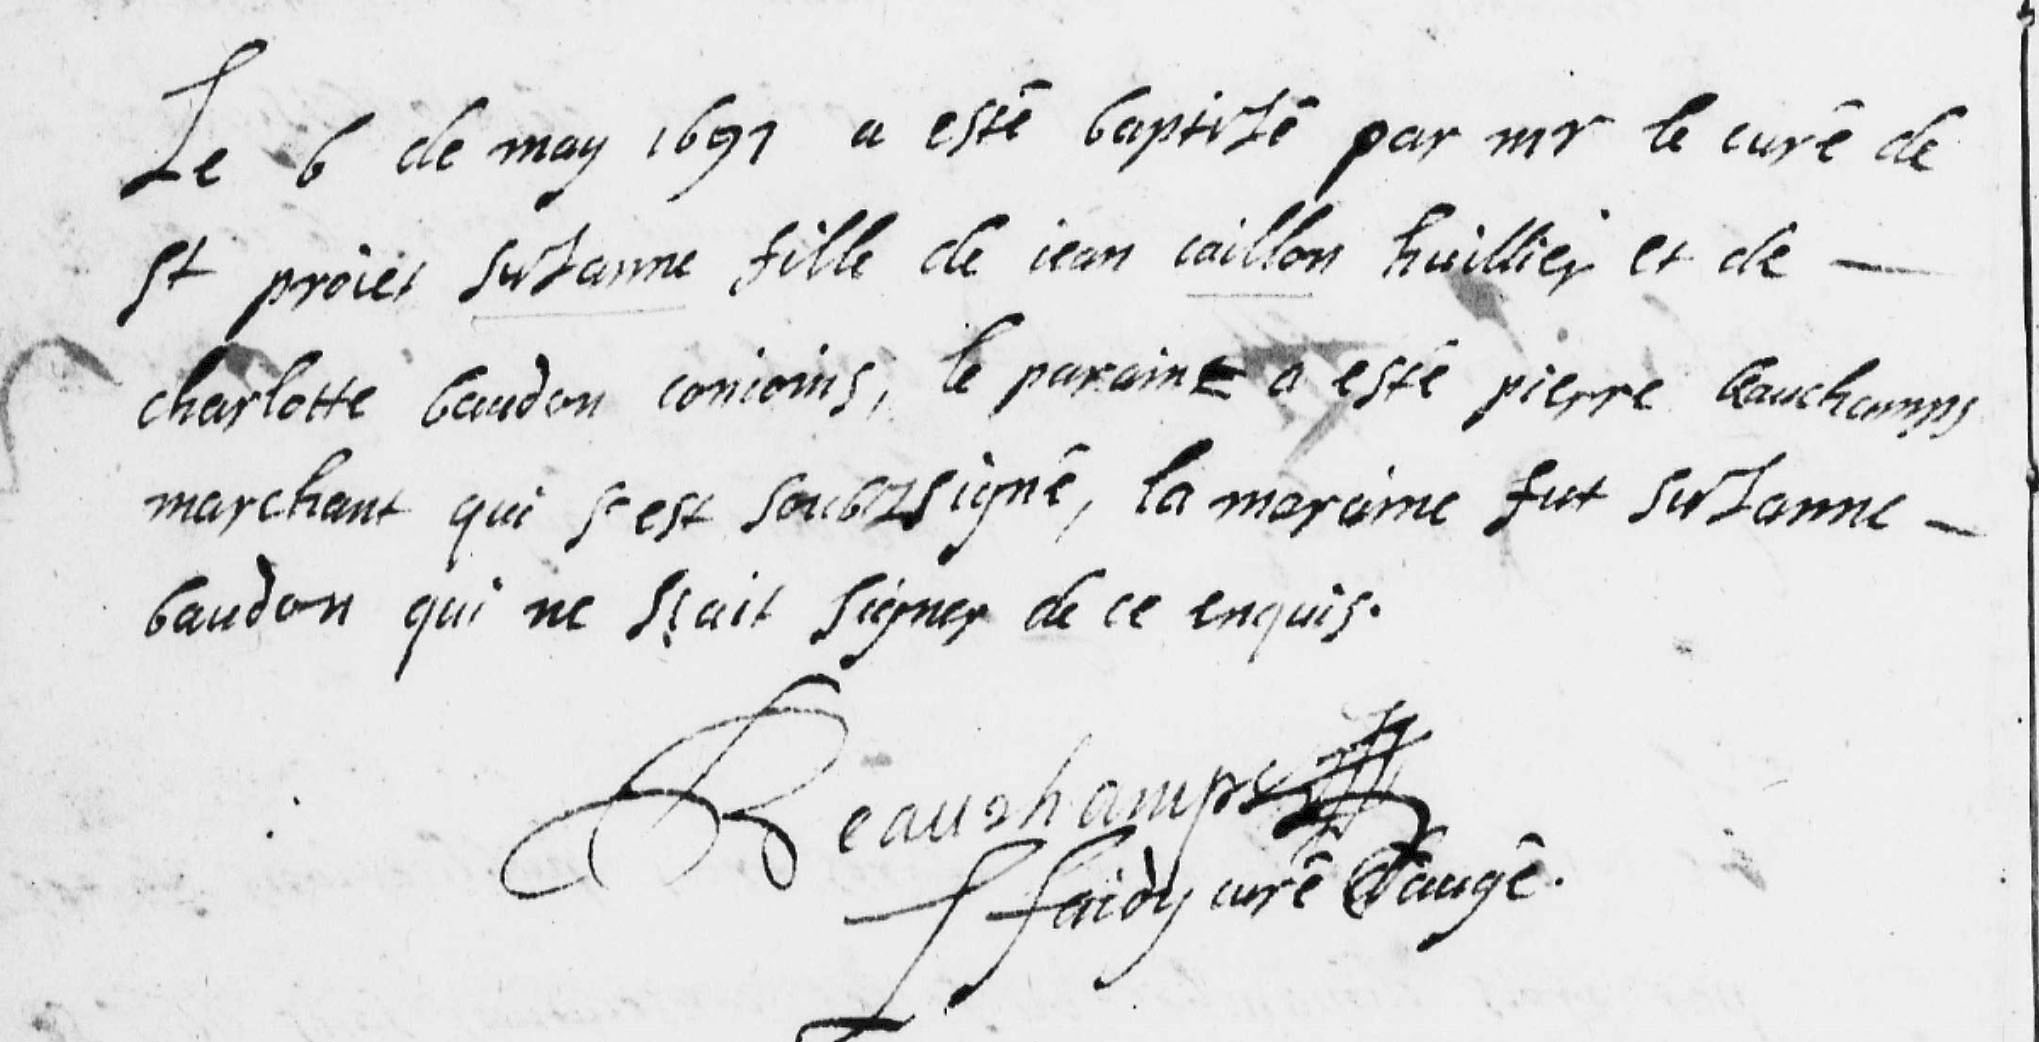 Le 6 de may 1697 a esté baptizé par mr le curé de
st proiet suzanne fille de iean caillon huillier et de —
charlotte baudon conioins, le paraint a esté pierre beauchamps
marchant qui s'est soubzsigné, la maraine fut suzanne —
baudon qui ne sçait signer de ce enquis.
Beauchamps
J faidy curé d'augé.